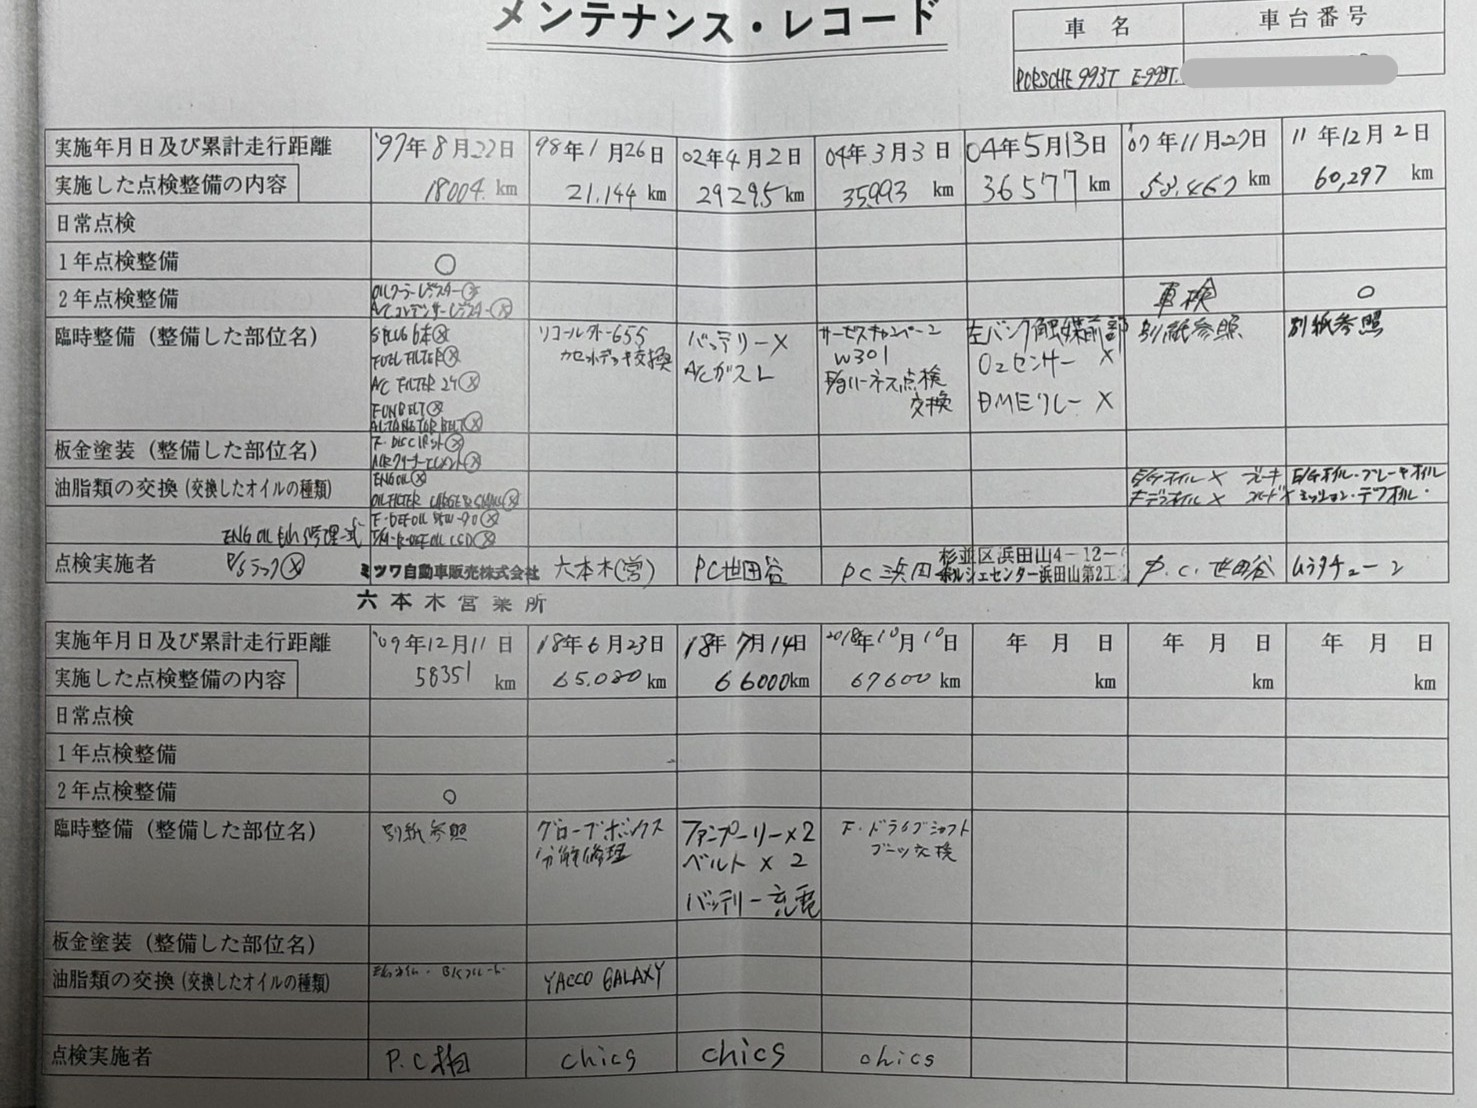 メンテナンス・レコード
車名 車台番号
PORSCHE 993T E-993T.
実施年月日及び累計走行距離 '97年8月22日 98年1月26日 02年4月2日 04年3月3日 04年5月13日 '07年11月27日 11年12月2日
実施した点検整備の内容 18004 km 21.144 km 29295 km 35993 km 36577 km km 60,297 km
日常点検
1年点検整備 ○
2年点検整備 車検 ○
臨時整備 (整備した部位名)
FUEL FILTER ⓧ
A/C FILTER 24 ⓧ
リコール
カセットデッキ交換
バッテリー×
A/CガスL
サービスキャンペーン
W301
E/gハーネス点検
交換
左バンク触媒前部
O2センサー ×
DMEリレー ×
別紙参照
別紙参照
板金塗装 (整備した部位名)
油脂類の交換 (交換したオイルの種類) ENG OIL ⓧ E/Gオイル × ブレーキ E/Gオイル・ブレーキオイル
Fデフオイル × ミッション・デフオイル・
点検実施者 ミツワ自動車販売株式会社 六本木(営) PC世田谷 PC 浜田 杉並区浜田山4-12- P.C.世田谷
ポルシェセンター浜田山第2工
六本木営業所
実施年月日及び累計走行距離 '09年12月11日 18年6月23日 18年7月14日 2018年10月10日 年月日 年月日 年月日
実施した点検整備の内容 58351 km 65.080 km 66000km 67600 km km km km
日常点検
1年点検整備
2年点検整備 ○
臨時整備 (整備した部位名) 別紙参照
グローブボックス
分解修理
ファンプーリー×2
ベルト×2
バッテリー充電
F・ドライブシャフト
ブーツ交換
板金塗装 (整備した部位名)
油脂類の交換 (交換したオイルの種類) YACCO GALAXY
点検実施者 P.C 柏 chics chics chics